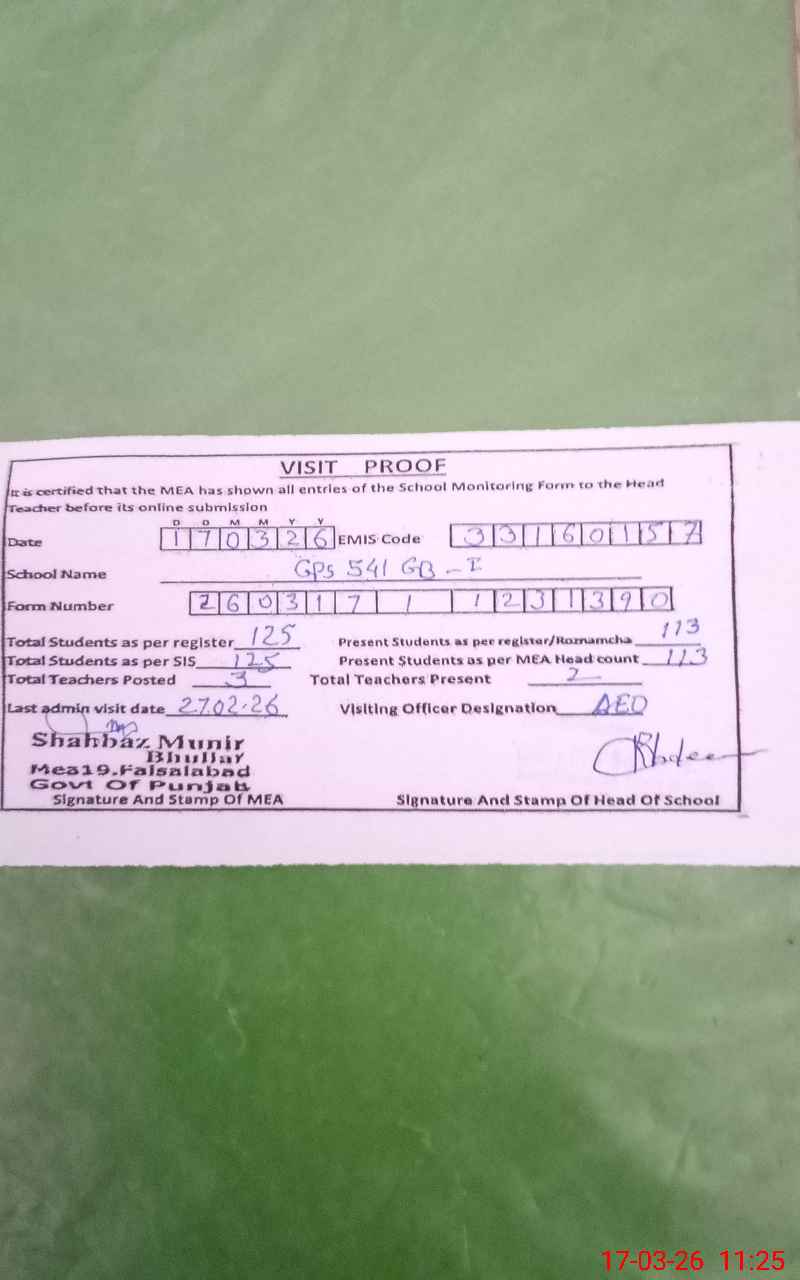 VISIT PROOF
It is certified that the MEA has shown all entries of the School Monitoring Form to the Head
Teacher before its online submission
D D M M Y Y
Date 170326 EMIS Code 33160157
School Name GPS 541 GB - I
Form Number 2603171 1231390
Total Students as per register 125 Present Students as per register/Roznamcha 113
Total Students as per SIS 125 Present Students as per MEA Head count 113
Total Teachers Posted 3 Total Teachers Present 2
Last admin visit date 27.02.26 Visiting Officer Designation AEO
Shahbaz Munir
Bhullar
Mea19.Faisalabad
Govt Of Punjab
Signature And Stamp Of MEA Signature And Stamp Of Head Of School
17-03-26 11:25